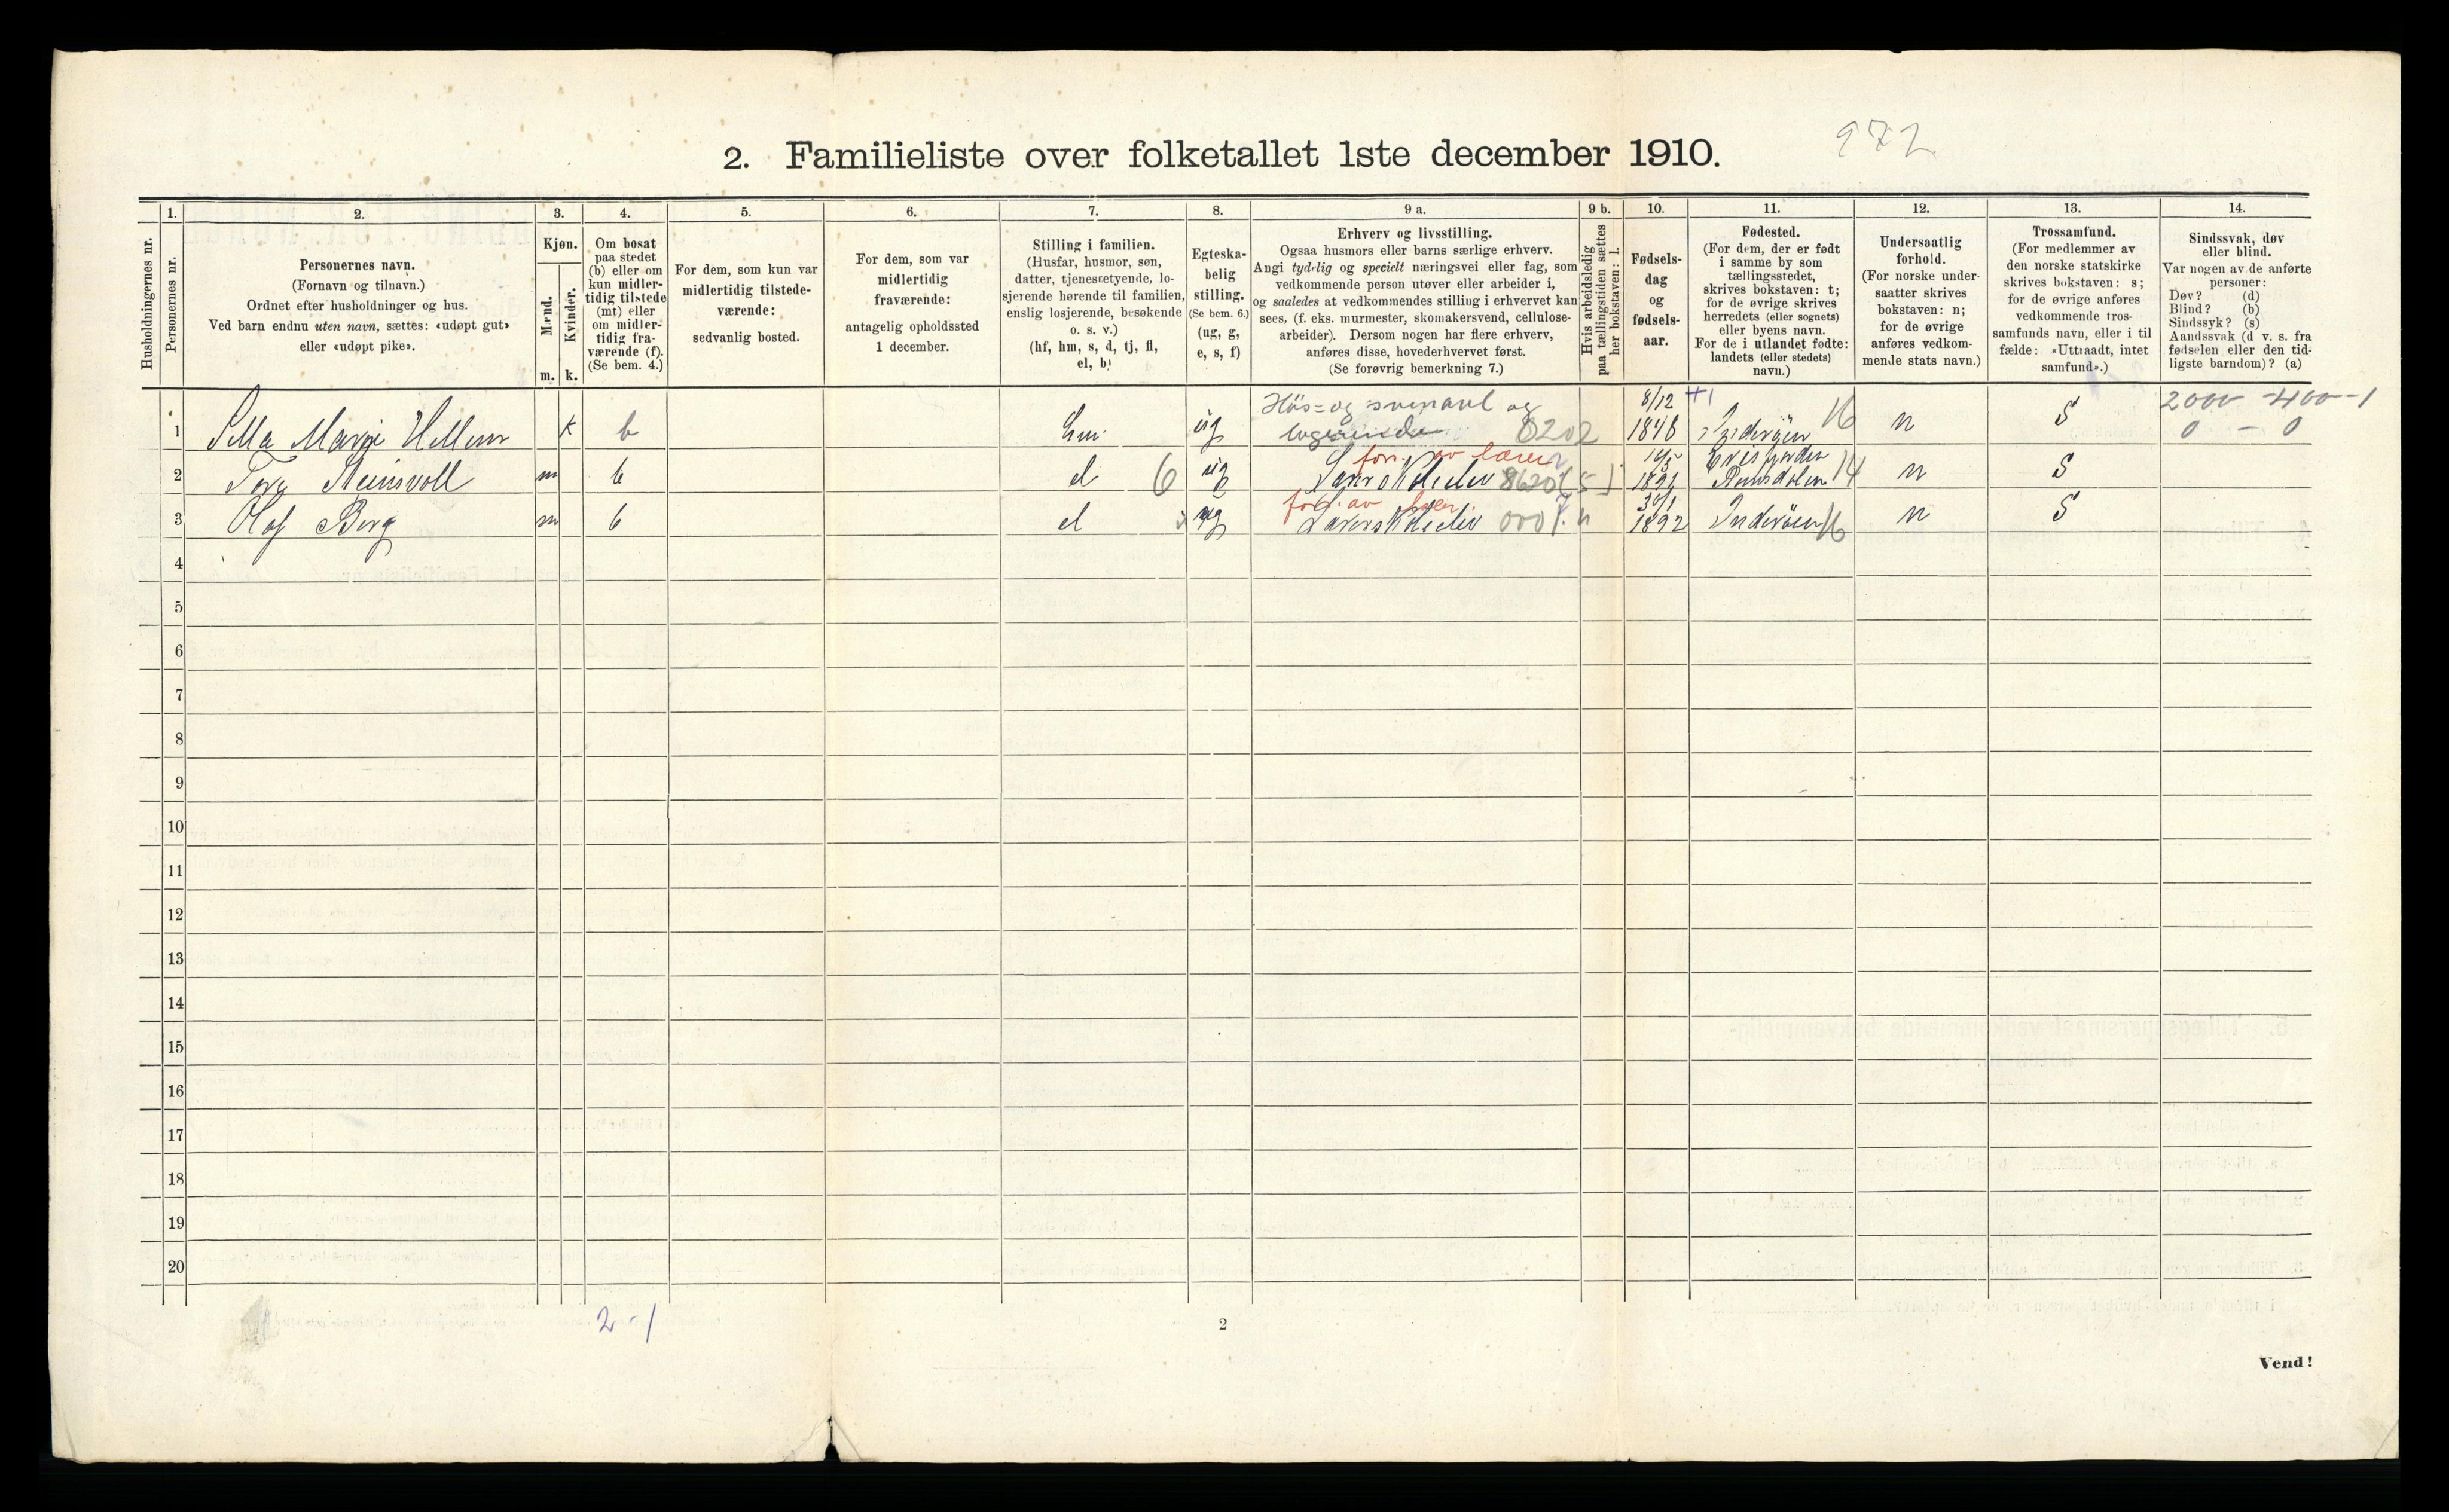 2. Familieliste over folketallet 1ste december 1910.
972
Husholdningernes nr.
1.
Personernes nr.
2.
Personernes navn.
(Fornavn og tilnavn.)
Ordnet efter husholdninger og hus.
Ved barn endnu uten navn, sættes: «udøpt gut»
eller «udøpt pike».
3.
Kjøn.
Mænd.
Kvinder.
m. k.
4.
Om bosat
paa stedet
(b) eller om
kun midler-
tidig tilstede
(mt) eller
om midler-
tidig fra-
værende (f).
(Se bem. 4.)
5.
For dem, som kun var
midlertidig tilstede-
værende:
sedvanlig bosted.
6.
For dem, som var
midlertidig
fraværende:
antagelig opholdssted
1 december.
7.
Stilling i familien.
(Husfar, husmor, søn,
datter, tjenesretyende, lo-
sjerende hørende til familien,
enslig losjerende, besøkende
o. s. v.)
(hf, hm, s, d, tj, fl,
el, b)
8.
Egteska-
belig
stilling.
(Se bem. 6.)
(ug, g,
e, s, f)
9 a.
Erhverv og livsstilling.
Ogsaa husmors eller barns særlige erhverv.
Angi tydelig og specielt næringsvei eller fag, som
vedkommende person utøver eller arbeider i,
og saaledes at vedkommendes stilling i erhvervet kan
sees, (f. eks. murmester, skomakersvend, cellulose-
arbeider). Dersom nogen har flere erhverv,
anføres disse, hovederhvervet først.
(Se forøvrig bemerkning 7.)
9 b.
Hvis arbeidsledig
paa tællingstiden sættes
her bokstaven: l.
10.
Fødsels-
dag
og
fødsels-
aar.
11.
Fødested.
(For dem, der er født
i samme by som
tællingsstedet,
skrives bokstaven: t;
for de øvrige skrives
herredets (eller sognets)
eller byens navn.
For de i utlandet fødte:
landets (eller stedets)
navn.)
12.
Undersaatlig
forhold.
(For norske under-
saatter skrives
bokstaven: n;
for de øvrige
anføres vedkom-
mende stats navn.)
13.
Trossamfund.
(For medlemmer av
den norske statskirke
skrives bokstaven: s;
for de øvrige anføres
vedkommende tros-
samfunds navn, eller i til
fælde: «Uttraadt, intet
samfund».)
14.
Sindssvak, døv
eller blind.
Var nogen av de anførte
personer:
Døv? (d)
Blind? (b)
Sindssyk? (s)
Aandssvak (d v. s. fra
fødselen eller den tid-
ligste barndom)? (a)
1 Marie Hellem k b hm ug Høs- og svineavl og 8202 8/12 1848 Inderøen 16 n S 2000 - 400 - 1
0 - 0
2 Steinsvoll m b el 6 ug fors. av lærer Lærerskoleelev 1891 Romsdalen 14 n S
3 Olaf Berg m b el ug fors. av Lærerskoleelev 30/1 1892 Inderøen 16 n S
4
5
6
7
8
9
10
11
12
13
14
15
16
17
18
19
20
2 - 1
2
Vend!